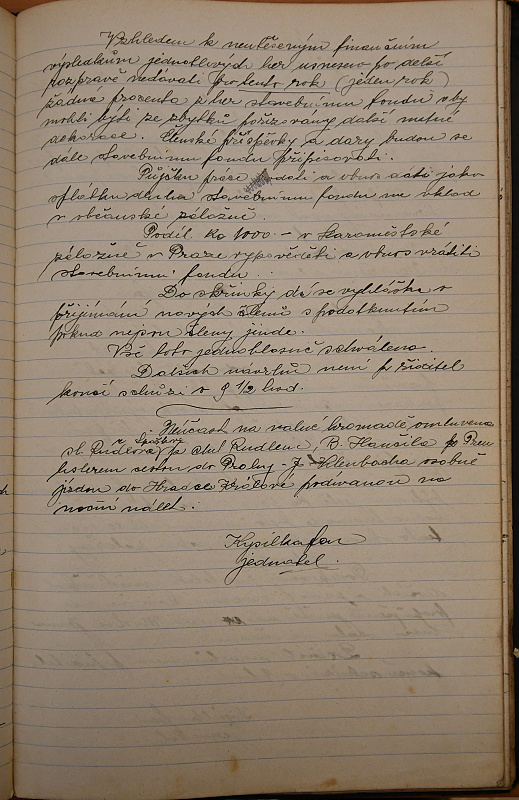 Vzhledem k neutěšeným finančním
výsledkům jednotlivých her usneseno po delší
rozpravě nedávati pro tento rok (jeden rok)
žádná procenta z her stavebnímu fondu aby
mohli býti ze zbytků pořizovány další nutné
dekorace. Členské příspěvky a dary budou se
dále stavebnímu fondu připisovati.
Půjčku práce a obnos dáti jako
splátku dluhu stavebnímu fondu na vklad
v občanské záložně.
Podíl Kč 1000.- v Staroměstské
záložně v Praze vypověděti a obnos vrátiti
stavebnímu fondu.
Do skřínky dá se vyhláška o
přijímání nových členů s podotknutím
pokud nejsou členy jinde.
Vše toto jednohlasně schváleno.
Dalších návrhů není p. řiditel
končí schůzi v 9 1/2 hod.
Neúčast na valné hromadě omluvena
sl. Rudlová p. Rudlem, B. Hančila p.
cestou do Prahy - J. osobně
jízdou do Hradce Králové podívanou na
noční nálet.
Kysilka Jan
jednatel.